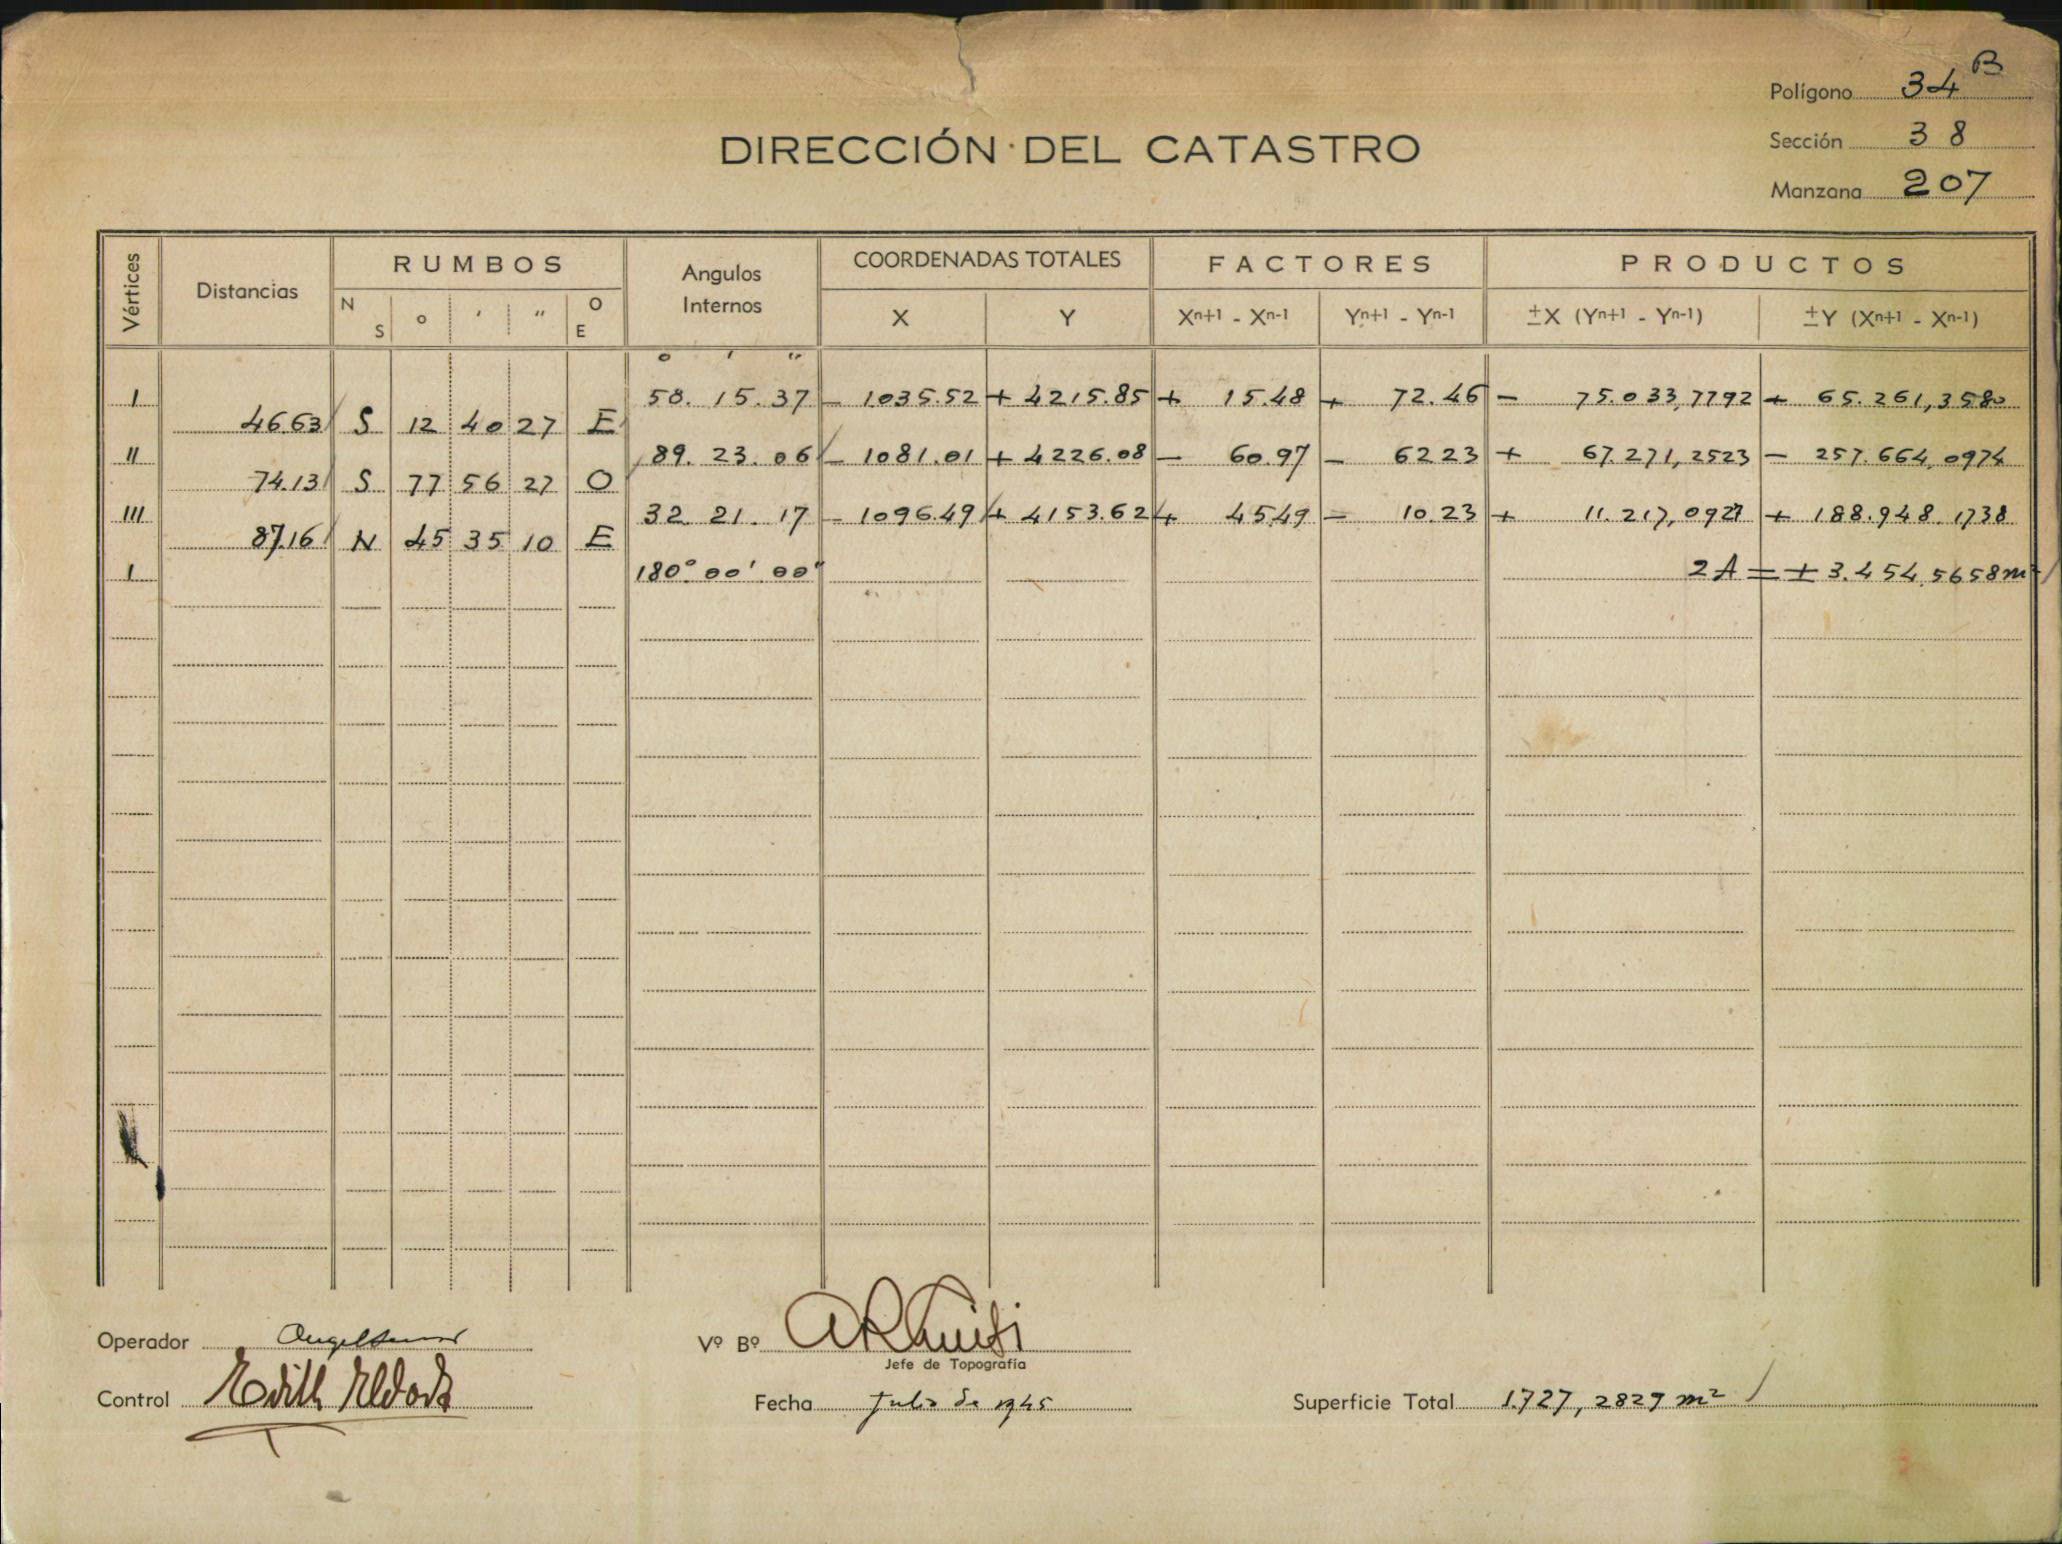 Polígono 34 B
DIRECCIÓN DEL CATASTRO
Sección 38
Manzana 207
Vértices Distancias RUMBOS Angulos Internos COORDENADAS TOTALES FACTORES PRODUCTOS
N S o ' " O E X Y Xn+1 - Xn-1 Yn+1 - Yn-1 ±X (Yn+1 - Yn-1) ±Y (Xn+1 - Xn-1)
o ' "
I 58. 15. 37 - 1035.52 + 4215.85 + 15.48 + 72.46 - 75.033,7792 + 65.261,3580
46.63 S 12 40 27 E
II 89. 23. 06 - 1081.01 + 4226.08 - 60.97 - 62.23 + 67.271,2523 - 257.664,0974
74.13 S 77 56 27 O
III 32. 21. 17 - 1096.49 + 4153.62 + 45.49 - 10.23 + 11.217,0927 + 188.948.1738
87.16 N 45 35 10 E
I 180° 00' 00" 2A = + 3.454.5658 m²
Operador
Vº Bº
Jefe de Topografía
Control Edith
Fecha Julio de 1945
Superficie Total 1.727,2829 m²